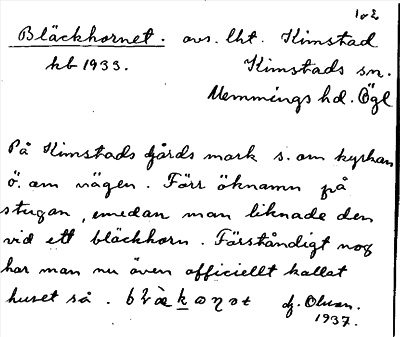 1 o 2
Bläckhornet. avs. lht. Kimstad
kb 1933. Kimstads sn.
Memmings hd. Ögl
På Kimstads gårds mark s. om kyrkan
ö. om vägen. Förr öknamn på
stugan, emedan man liknade den
vid ett bläckhorn. Förståndigt nog
har man nu även officiellt kallat
huset så.
1937.